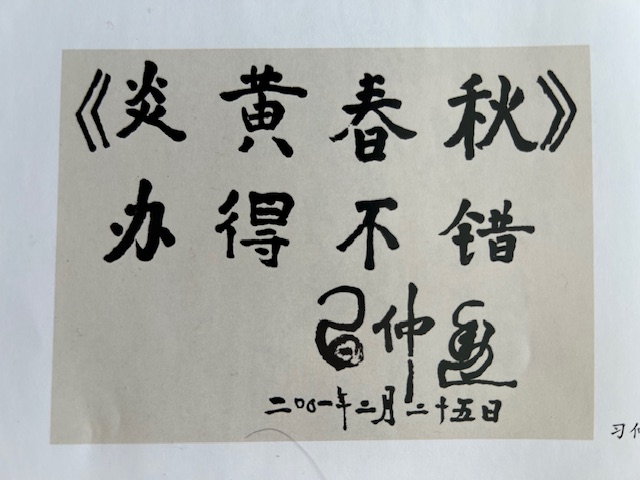 《炎黄春秋》
办得不错
习仲勋
二〇〇一年二月二十五日
习仲